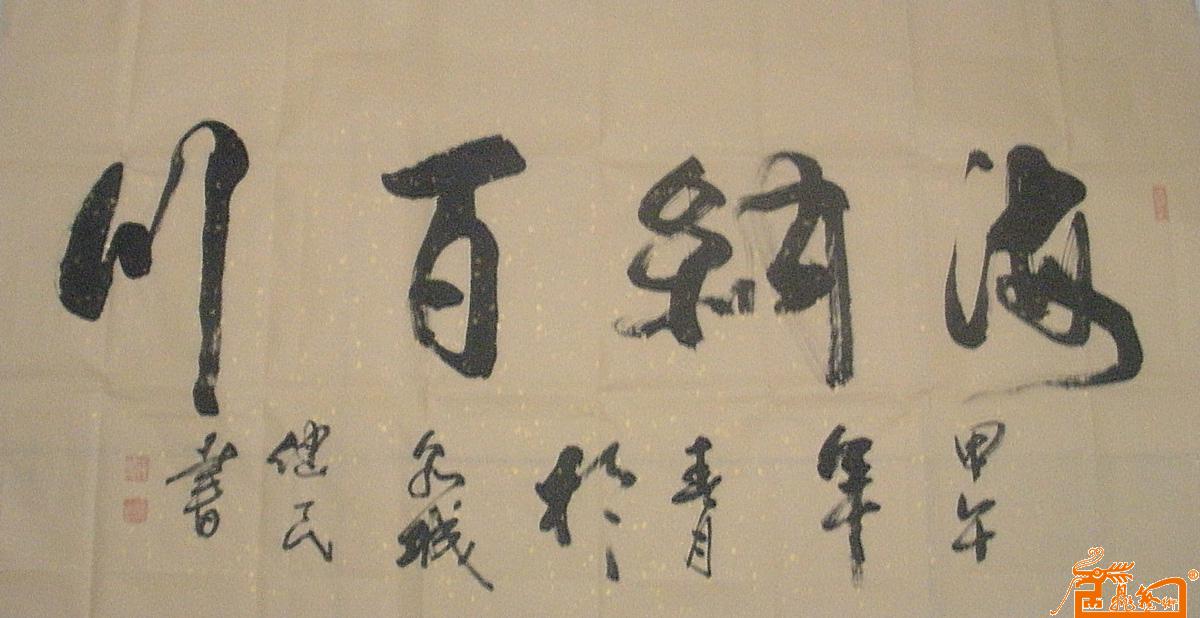 海納百川
甲午年春月於泉城健民書